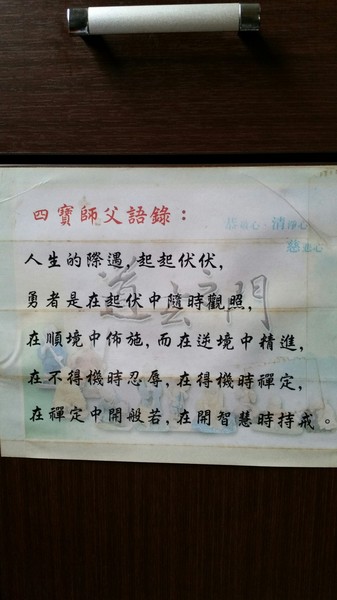 四寶師父語錄：
清淨心
慈悲心
人生的際遇，起起伏伏，
勇者是在起伏中隨時觀照，
道玄門
在順境中佈施，而在逆境中精進，
在不得機時忍辱，在得機時禪定，
在禪定中開般若，在開智慧時持戒。